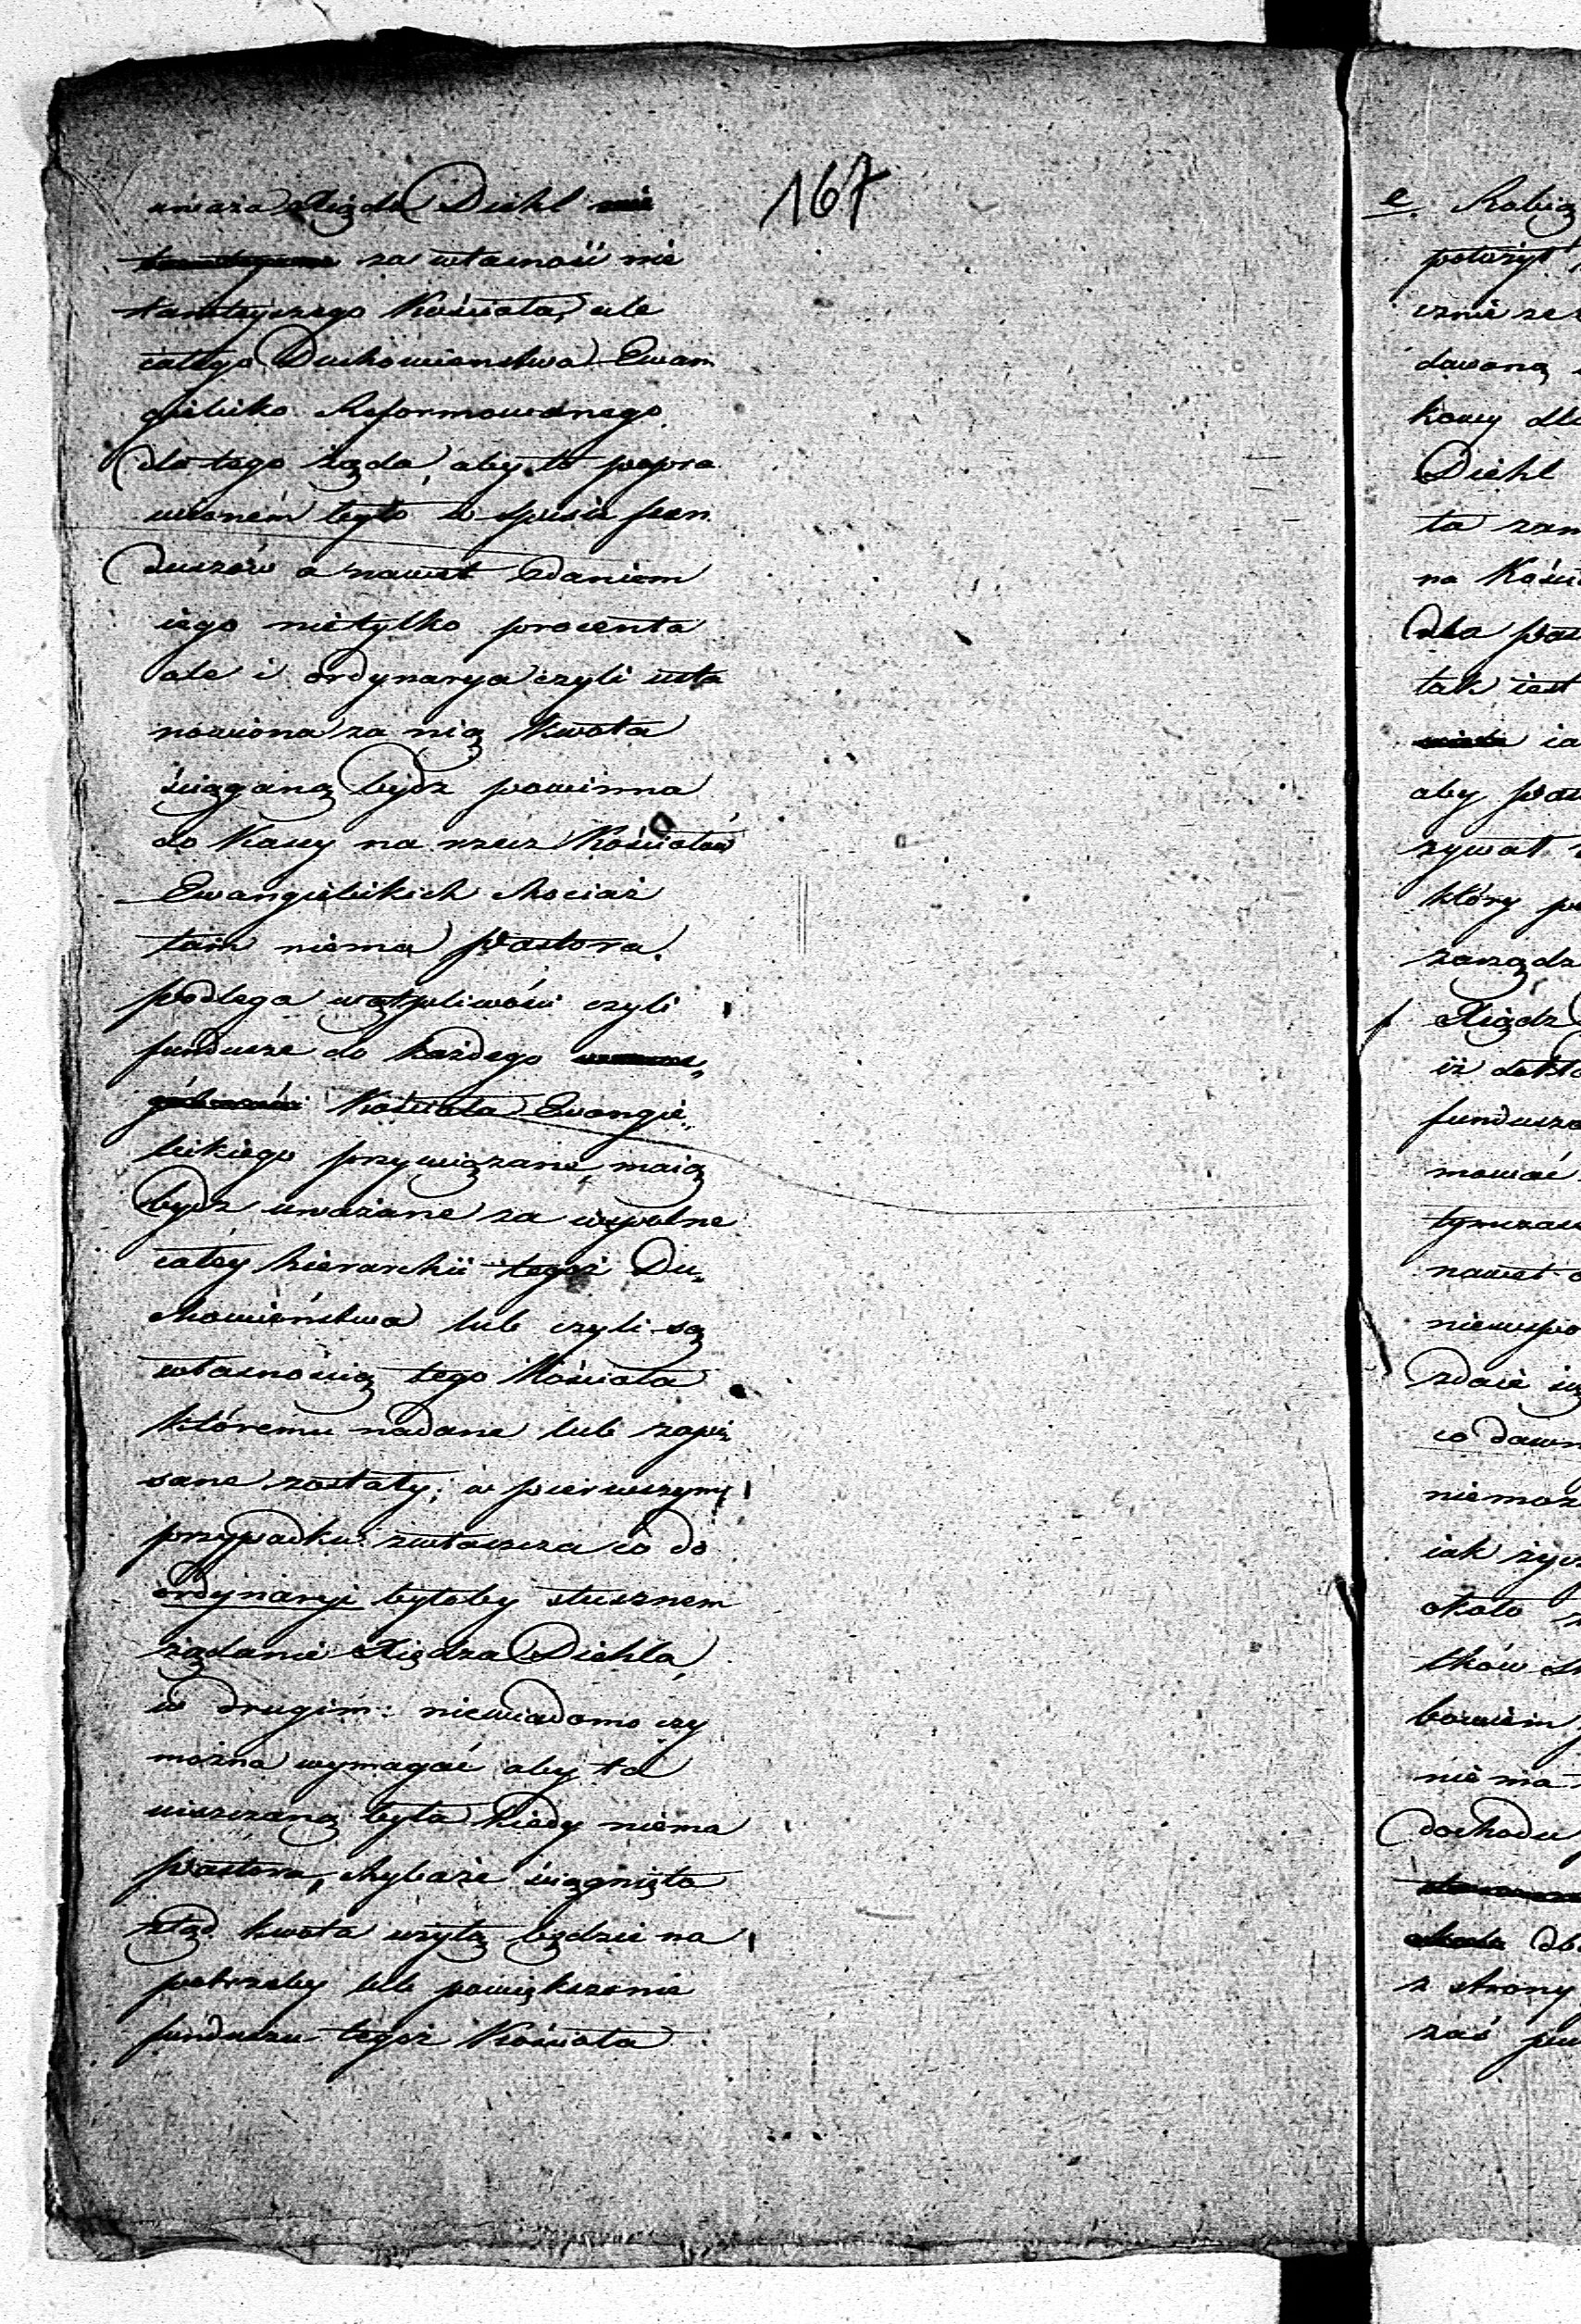 167
uważa Xiądz Diehl nie
za własność nie
tamteyszego Kościoła, ale
całego Duchowieństwa Ewan
gielicko Reformowanego
dla tego żąda, aby to popra
wioném było w spisie fun
duszów a nawet zdaniem
iego nietylko procenta
ale i ordynarya czyli usta
nowiona za nią kwota
ściąganą bydź powinna
do Kassy na rzecz Kościołów
Ewangielickich chociaż
tam niema Pastora.
podlega wątpliwości czyli
fundusze do każdego
Kościoła Ewangie„
lickiego przywiązane, maią
bydź uważane za wspolne
całey hierarchii tegoż Du„
chowieństwa lub czyli są
własnością tego Kościoła
któremu nadane lub zapi„
sane zostały; w pierwszym
przypadku zwłaszcza co do
ordynaryi byłoby słusznem
żądanie Xiędza Diehla,
w drugim: niewiadomo czy
można wymagać aby ta
uiszczaną była kiedy niema
Pastora, chybaże ściągnięta
ztąd kwota użytą będzie na
potrzeby lub powiększenie
funduszu tegoż Kościoła
e. 
położył
cznie ze
dawaną
kowy dla
Diehl
ta
na Kości
dla Pas
tak iest
ia
aby Pas
zywał
który po
zarządz
f Xiądz
iż
fundusz
mować
tymczas
nawet
niewspo
zdaie się
co dawn
niemoż
iak życz
około
tków
bowiem
nie ma
dochodu
z strony
zaś